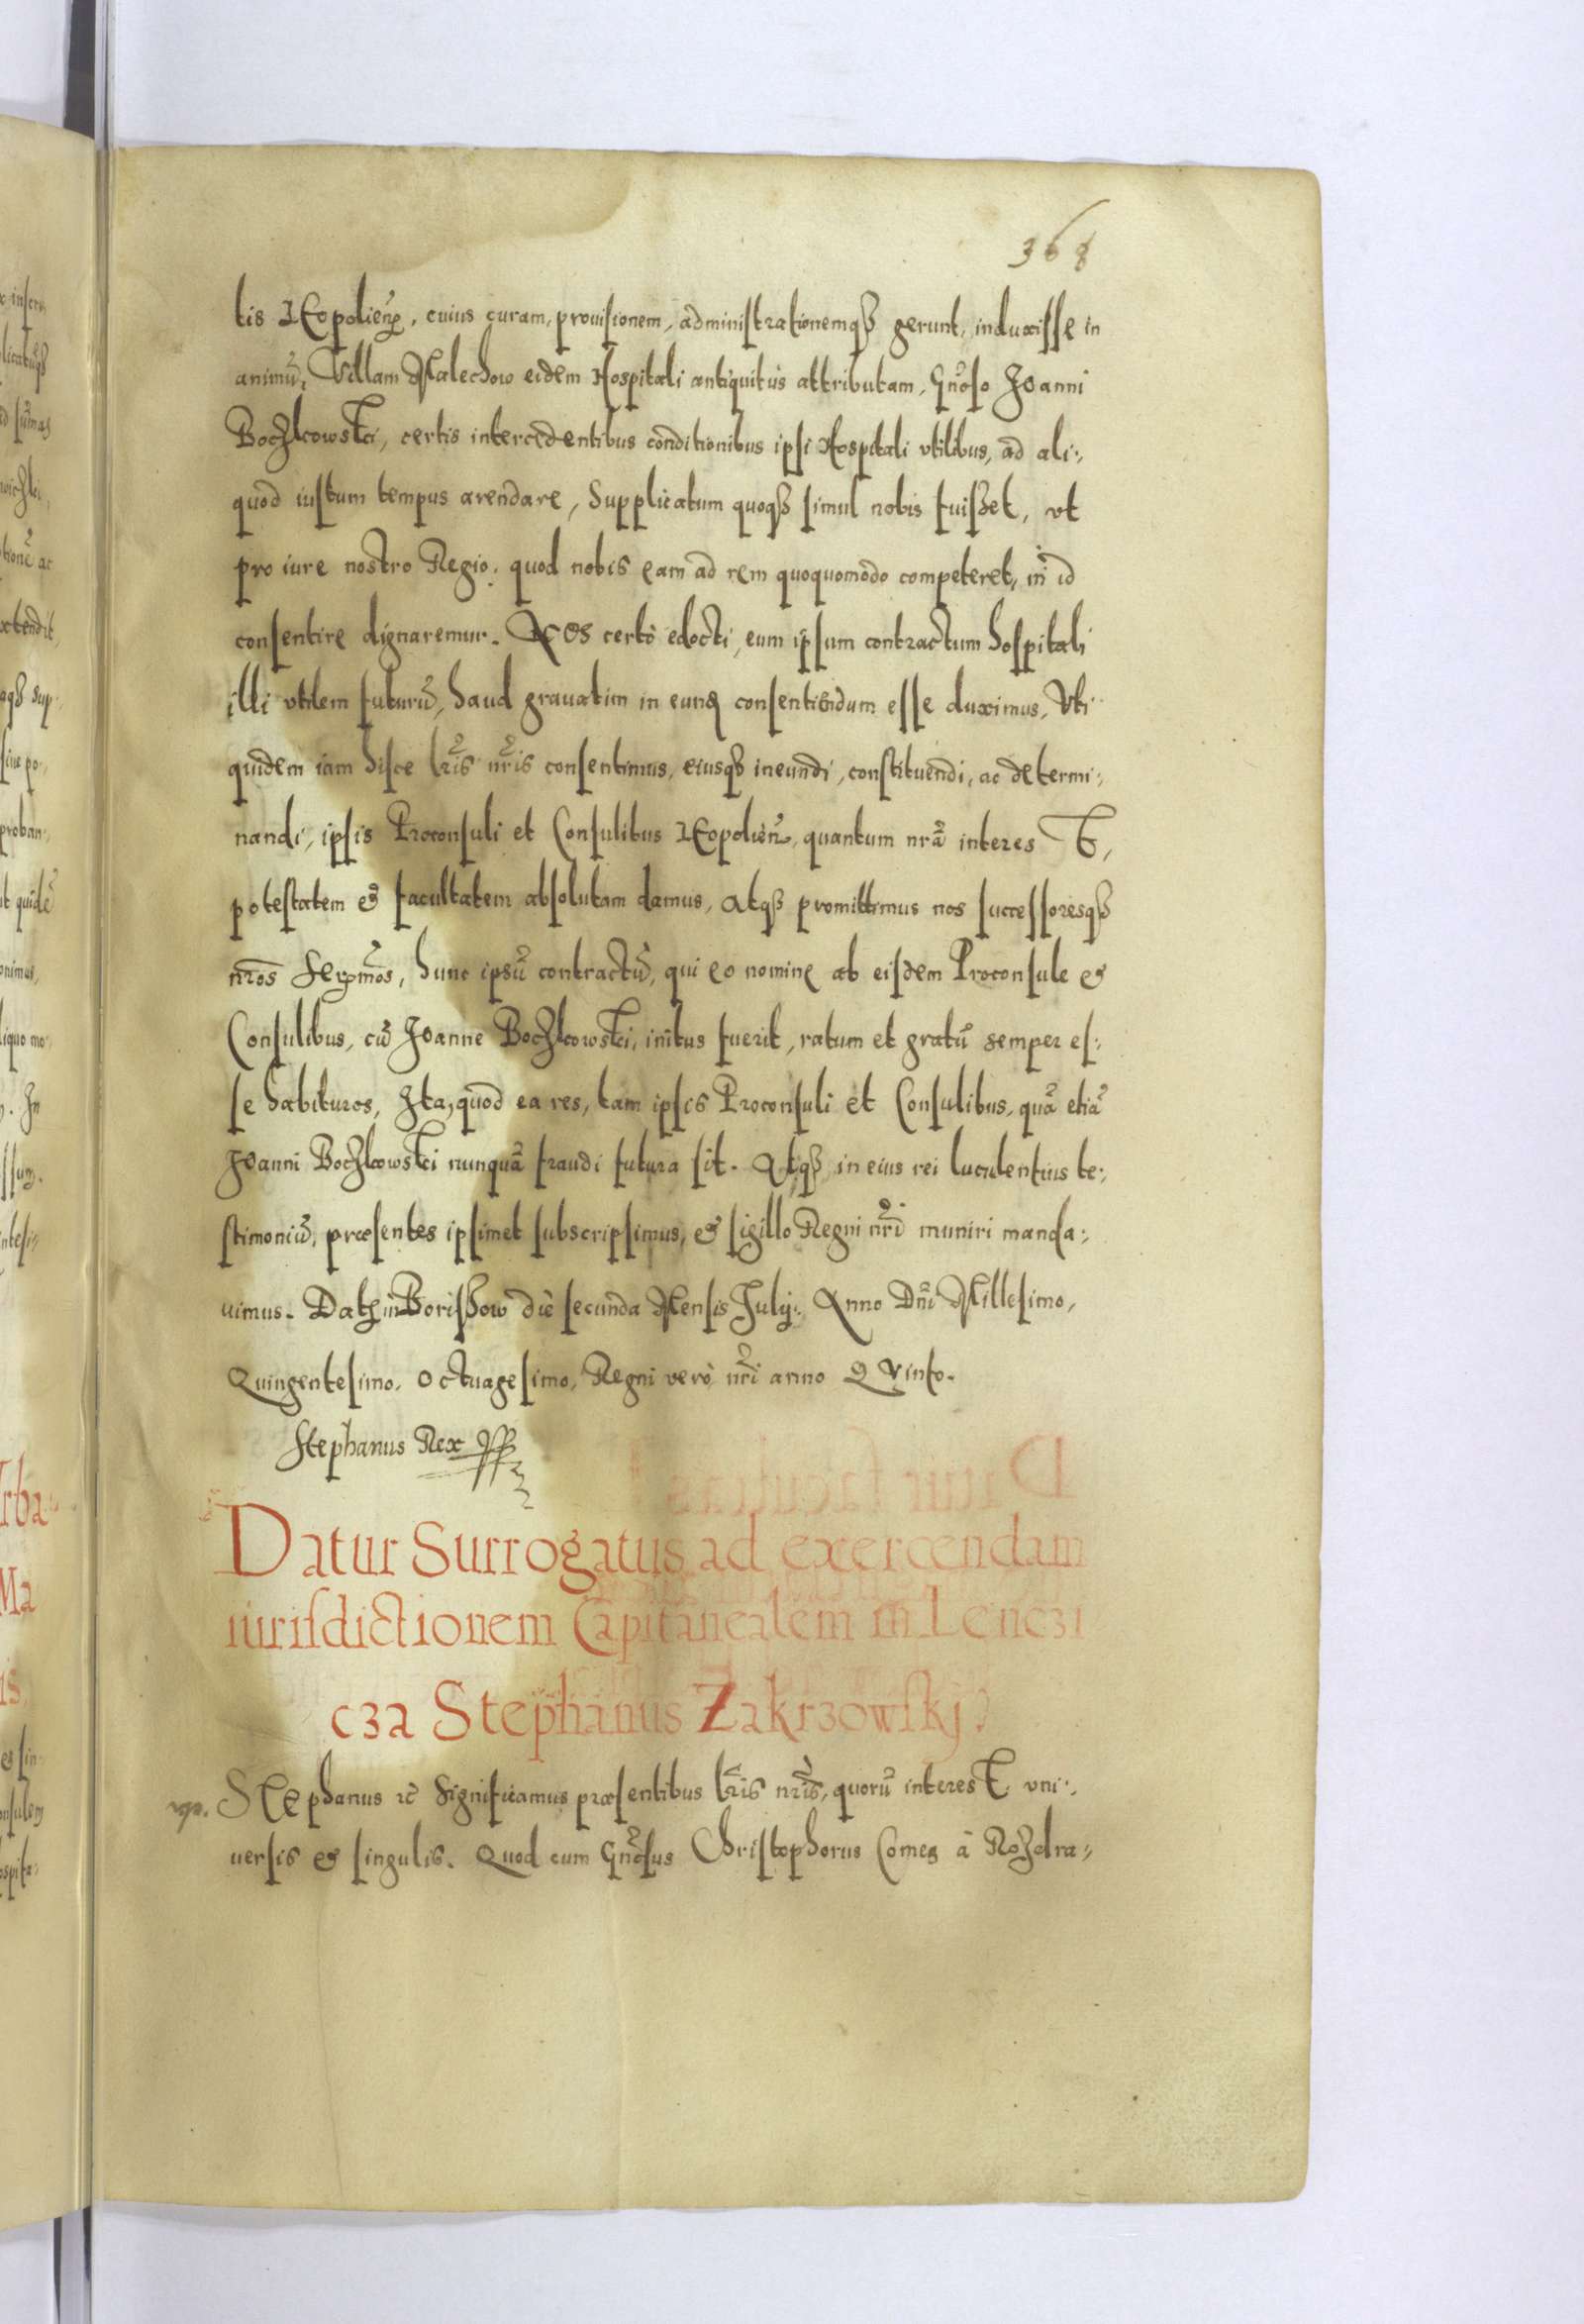 368
tis LEopolieñ. cuius curam, prouisionem, administrationemqß gerunt, induxisse in
animũ, Villam Malechow eidem Hospitali antiquitùs attributam, Gñoso Joanni
Boczkowski, certis intercedentibus conditionibus ipsi Hospitali vtilibus, ad ali:,
quod iustum tempus arendare, Supplicatum quoqß simul nobis fuißet, vt
pro iure nostro Regio, quod nobis eam ad rem quoquomodo competeret, in id
consentire dignaremur. NOS certò edocti, eum ipsum contractum hospitali
illi vtilem futurũ, haud grauatim in eunđ consentiendum esse duximus, Vti
quidem iam hisce lr̃is nr̃is consentimus, eiusqß ineundi, constituendi, ac determi:,
nandi, ipsis Proconsuli et Consulibus LEopolieñ, quantum nrã interesT,
potestatem et facultatem absolutam damus, Atqß promittimus nos successoresqß
nr̃os Serm̃os, hunc ipsũ contractũ, qui eo nomine ab eisdem Proconsule et
Consulibus, cũ Joanne Boczkowski, initus fuerit, ratum et gratũ semper es:,
se habituros, Ita, quod ea res, tam ipsis Proconsuli et Consulibus, quã etiã
Joanni Boczkowski nunquã fraudi futura sit. Atqß in eius rei luculentius te:,
stimoniũ, præsentes ipsimet subscripsimus, et sigillo Regni nr̃i muniri manda:,
uimus. Datʒ in Borißow die secunda Mensis Julij. Anno Dñi Millesimo,
Quingentesimo, Octuagesimo, Regni verò nr̃i anno QVinto.
Stephanus Rex
Datur Surrogatus ad exercendam
iurisdictionem Capitanealem in Lenczi
cza Stephanus Zakrzowskj.
STephanus ꝛc̃ Significamus præsentibus lr̃is nr̃is, quorũ interesT, vni:,
uersis et singulis. Quod cum Gñosus Christophorus Comes à Rozdra:,